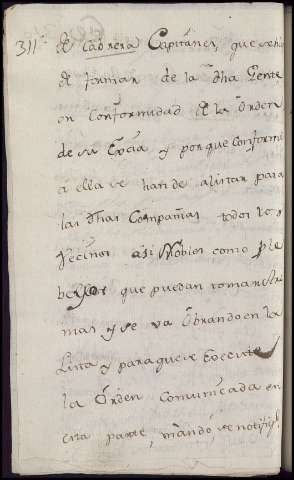 311.
de Cabrera Capitanes, que se ha
de formar de la dha Gente
en Conformidad de la Orden
de su Exca y porque Conforme
a ella se han de alistar para
las dhas Compañias todos los
Vecinos asi Nobles como ple
beyos que puedan tomar Ar
mas y se va Obrando en la
Lista y para que se Execute
la Orden Comunicada en
esta parte, mando, se notifiq